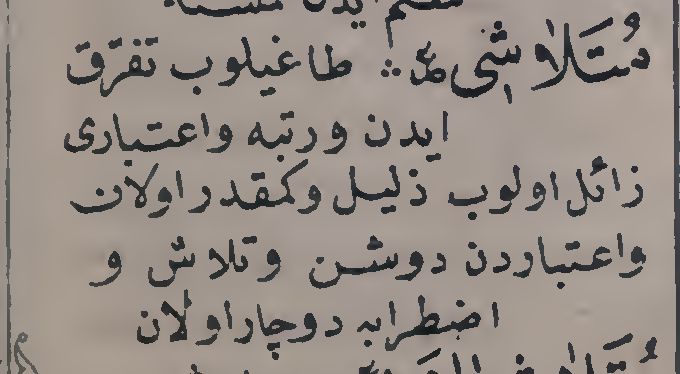 ايدن
مُتَلَاشِى ع :: طاغيلوب تفرّق
ايدن ورتبه واعتبارى
زائل اولوب ذليل وكمقدر اولان
واعتباردن دوشن وتلاش و
اضطرابه دوچار اولان